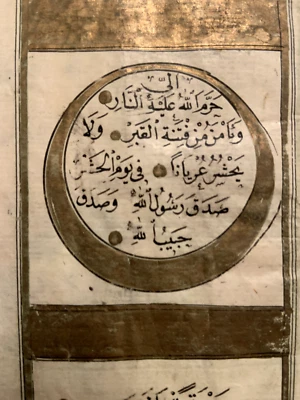 الى
حَرَّمَ اللهُ عَلَيْهِ النَّارَ
وَتَامَنُ مِنْ فِتْنَةِ القَبْرِ وَلَا
يَحْشُرُ عُرْيَاناً فِى يَوْمِ الحَشْرِ
صَدَقَ رَسُولُ اللهِ وَصَدَقَ
حَبِيبُ اللهِ